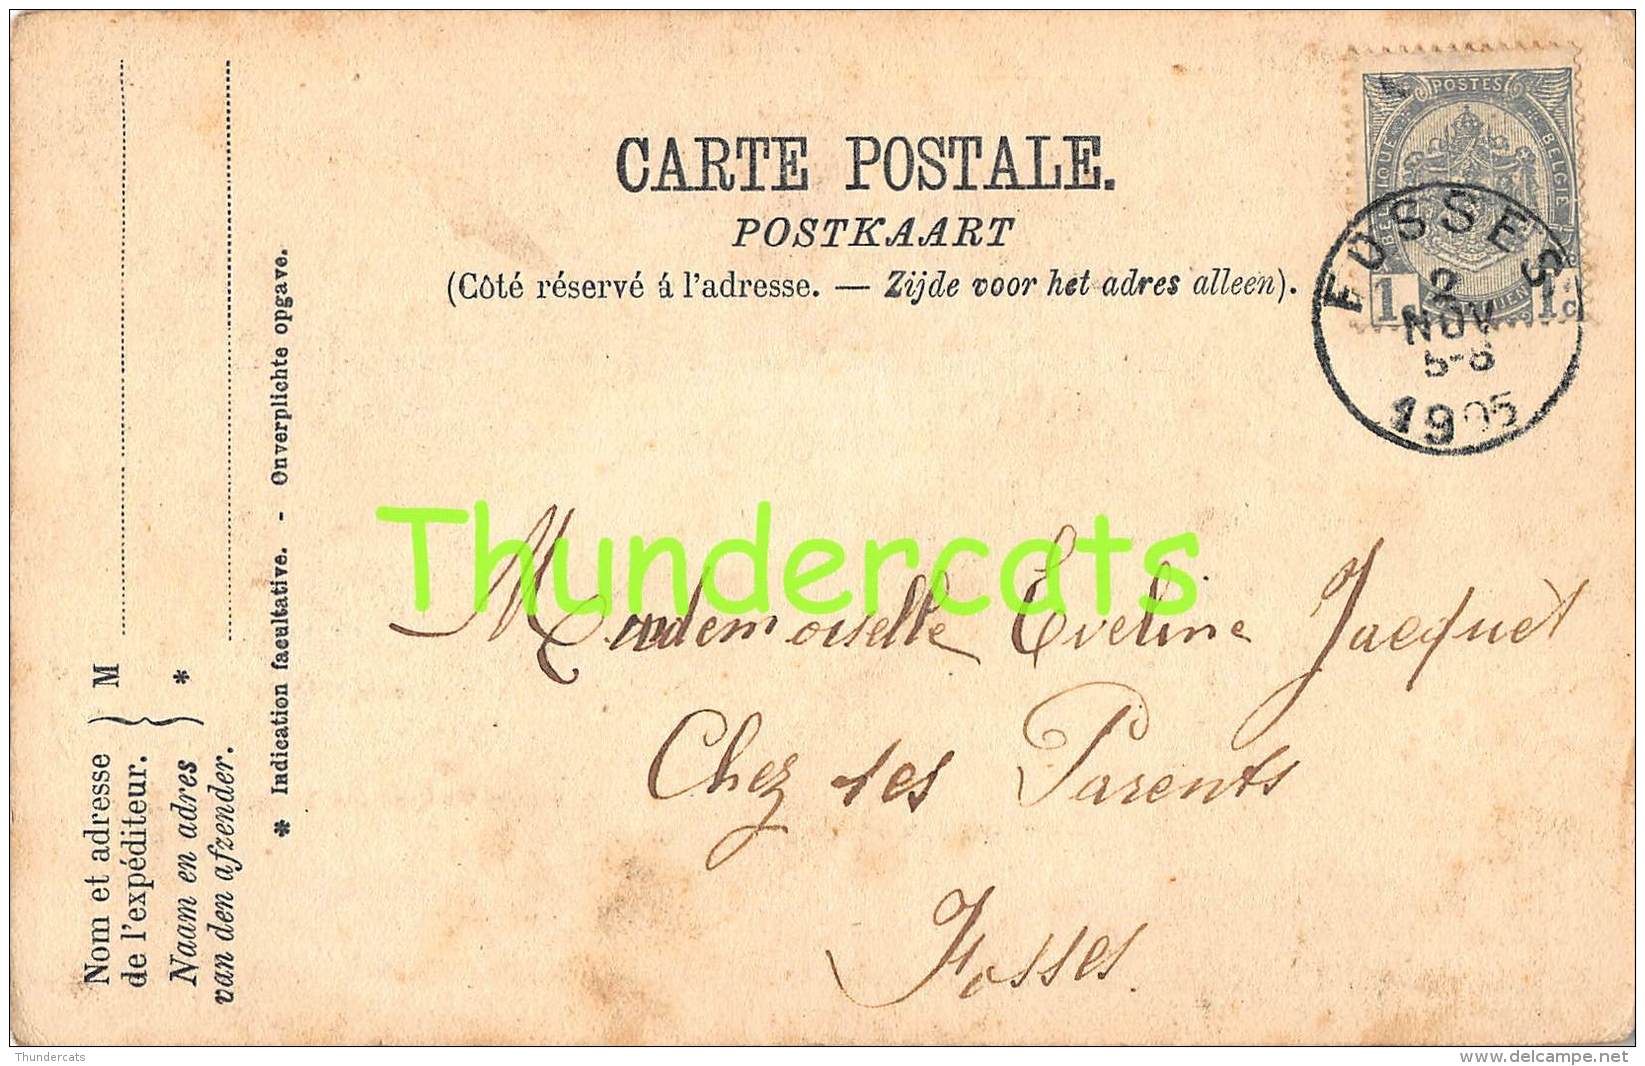 CARTE POSTALE.
POSTKAART
(Côté réservé á l'adresse. — Zijde voor het adres alleen).
POSTES
BELGIQUE
BELGIE
1 1
FOSSES
2
NOV
5-6
1905
Thundercats
Mademoiselle Eveline Jacquet
Chez ses Parents
Fosses.
Nom et adresse
de l'expéditeur.
Naam en adres
van den afzender.
M
*
* Indication facultative. - Onverplichte opgave.
Thundercats
www.delcampe.net